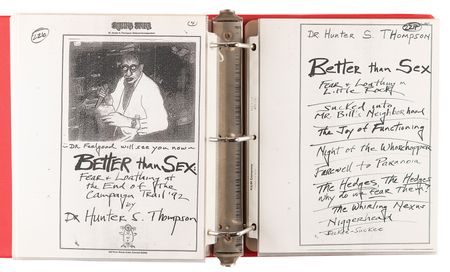 — Dr. Feelgood will see you now —
Better than Sex:
Fear & Loathing at
the End of the
Campaign Trail '92
by
Dr Hunter S. Thompson
Dr Hunter S. Thompson
Better than Sex
Fear & Loathing in
Little Rock
Sucked into
Mr. Bill's Neighborhood
The Joy of Functioning
Night of the Whorehopper
Farewell to Paranoia
The Hedges, The Hedges
why do we fear Them?
The Whirling Nexus
Niggerhead